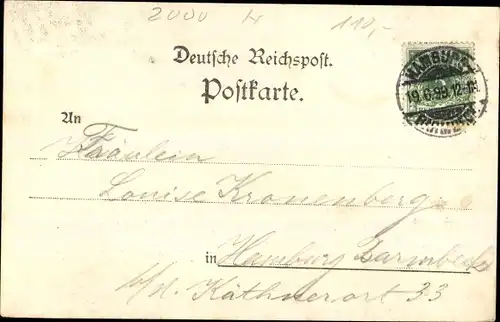 2000 H 110,-
HAMBURG
19.6.99.12-1N.
Deutsche Reichspost.
Postkarte.
An
Fräulein
Louise Kronenberg
in Hamburg Barmbeck
Käthnerort 33